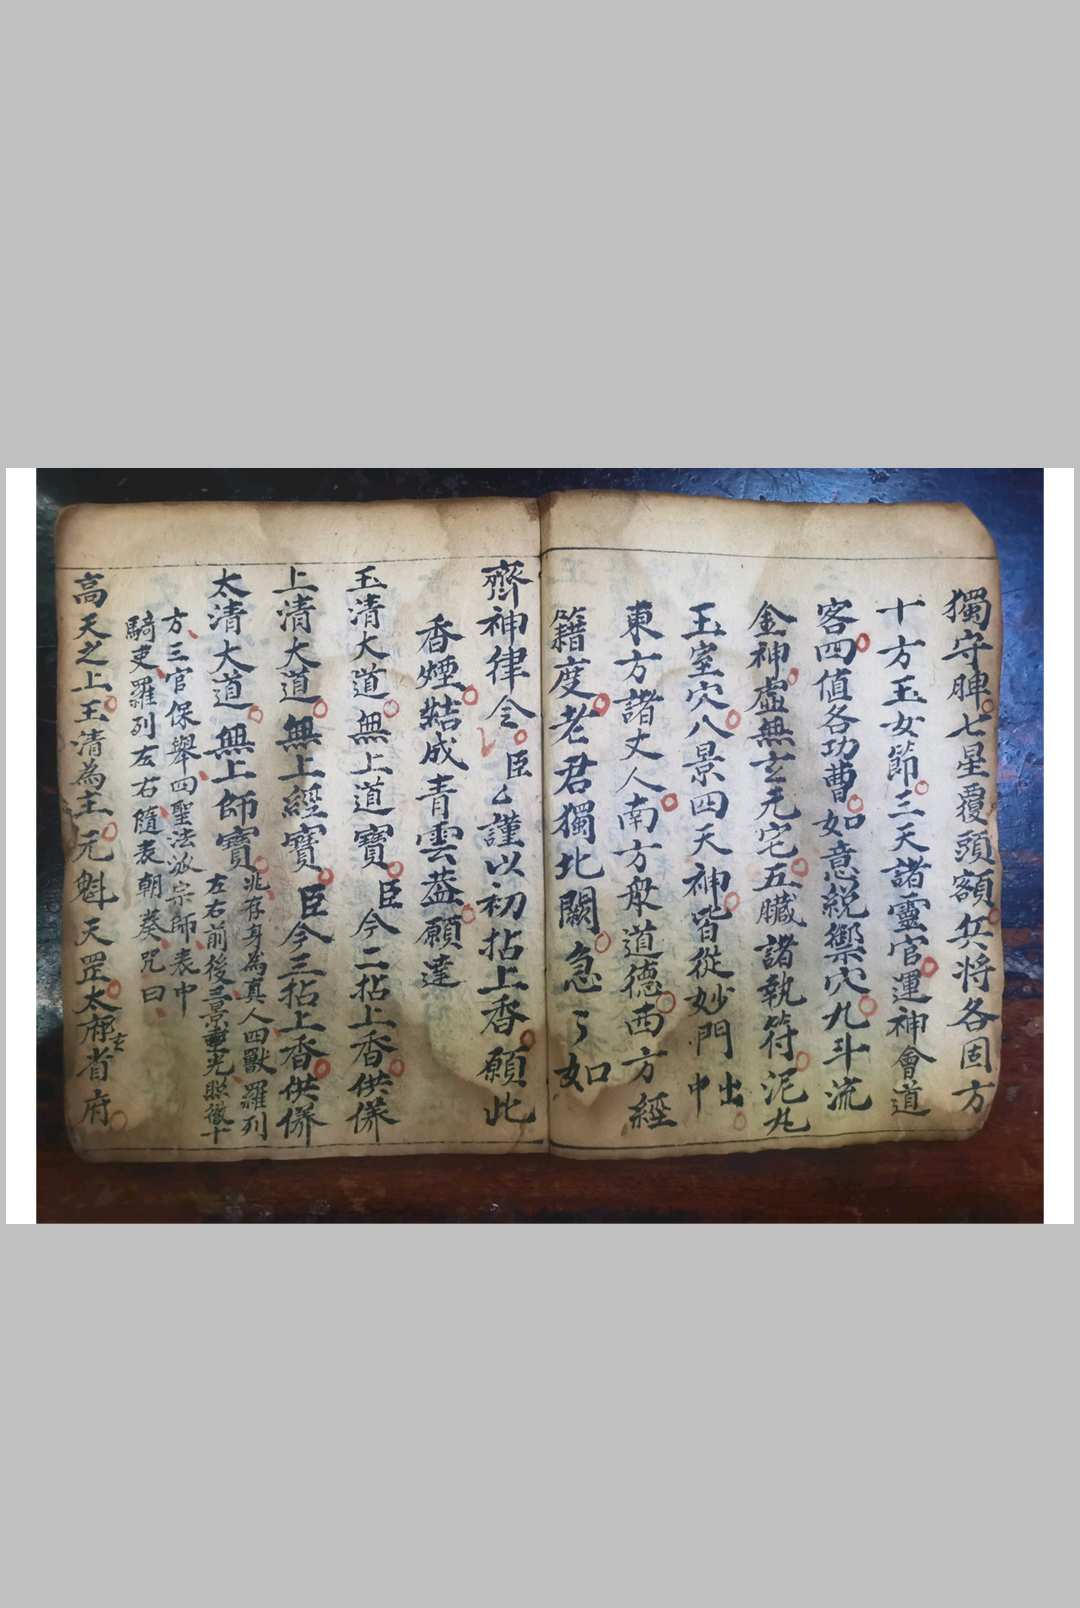 獨守脾七星覆頭額兵将各固方
十方玉女節三天諸靈官運神會道
客四值各功曹如意統禦穴九斗流
金神虛無玄元宅五臟諸執符泥丸
玉室穴八景四天神皆從妙門出中
東方諸丈人南方衆道德西方經
籍度老君獨北闕急〻如
齊神律令臣厶謹以初拈上香願此
香煙結成青雲葢願達
玉清大道無上道寶臣今二拈上香供養
上清大道無上經寶臣今三拈上香供養
太清大道無上師寶
兆存身為真人四獸羅列
左右前後三景重光照徹十
方三官保舉四聖法派宗師表中
騎吏羅列左右随表朝奏咒曰
高天之上玉清為主元魁天罡太极省府